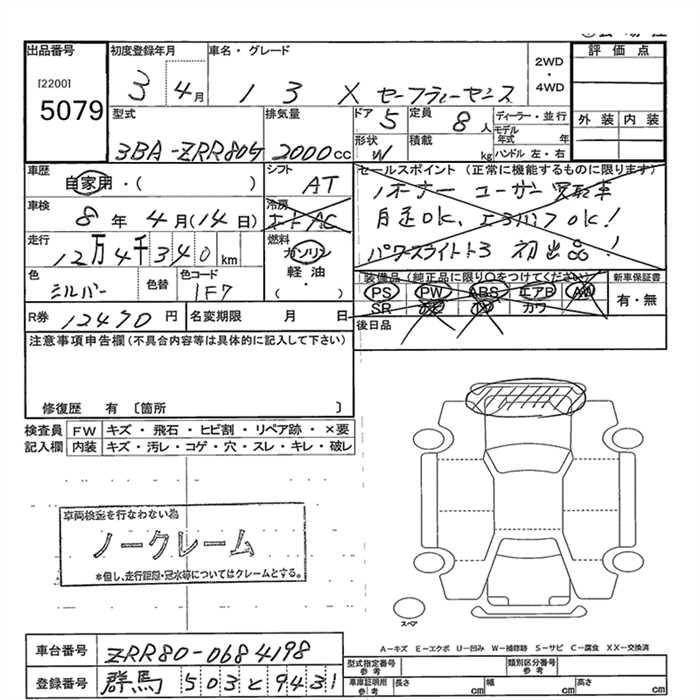 出品番号 初度登録年月 車名・グレード 2WD ・ 4WD 評価点
[2200] 5079 3 4月 1 3 X セーフティーセンス
型式 排気量 ドア 5 定員 8人 ディーラー・並行 外装 内装
3BA-ZRR80G 2000cc 形状 W 積載 kg モデル年式 年 ハンドル 左・右
車歴 自家用・( ) シフト AT セールスポイント (正常に機能するものに限ります)
車検 8年 4月(14日) 冷房 オートAC
1オーナー ユーザー買取車
自走OK、エンジンOK!
走行 12万4千340km 燃料 ガソリン 軽油 ・( )
初出品!
色 シルバー 色替 色コード 1F7
装備品(純正品に限り○をつけてください) 新車保証書
PS PW ABS エアB AW 有・無
SR カワ
R券 12470円 名変期限 月 日 後日品
注意事項申告欄(不具合内容等は具体的に記入して下さい)
修復歴 有 〔箇所 〕
検査員 FW キズ・飛石・ヒビ割・リペア跡・×要
記入欄 内装 キズ・汚レ・コゲ・穴・スレ・キレ・破レ
車両検査を行なわない為
ノークレーム
*但し、走行距離・冠水等についてはクレームとする。
スペア
A-キズ E-エクボ U-凹み W-補修跡 S-サビ C-腐食 XX-交換済
車台番号 ZRR80-0684198
型式指定番号 参考 類別区分番号 参考
登録番号 群馬 503 と 9431
車庫証明用 参考 長さ cm 幅 cm 高さ cm